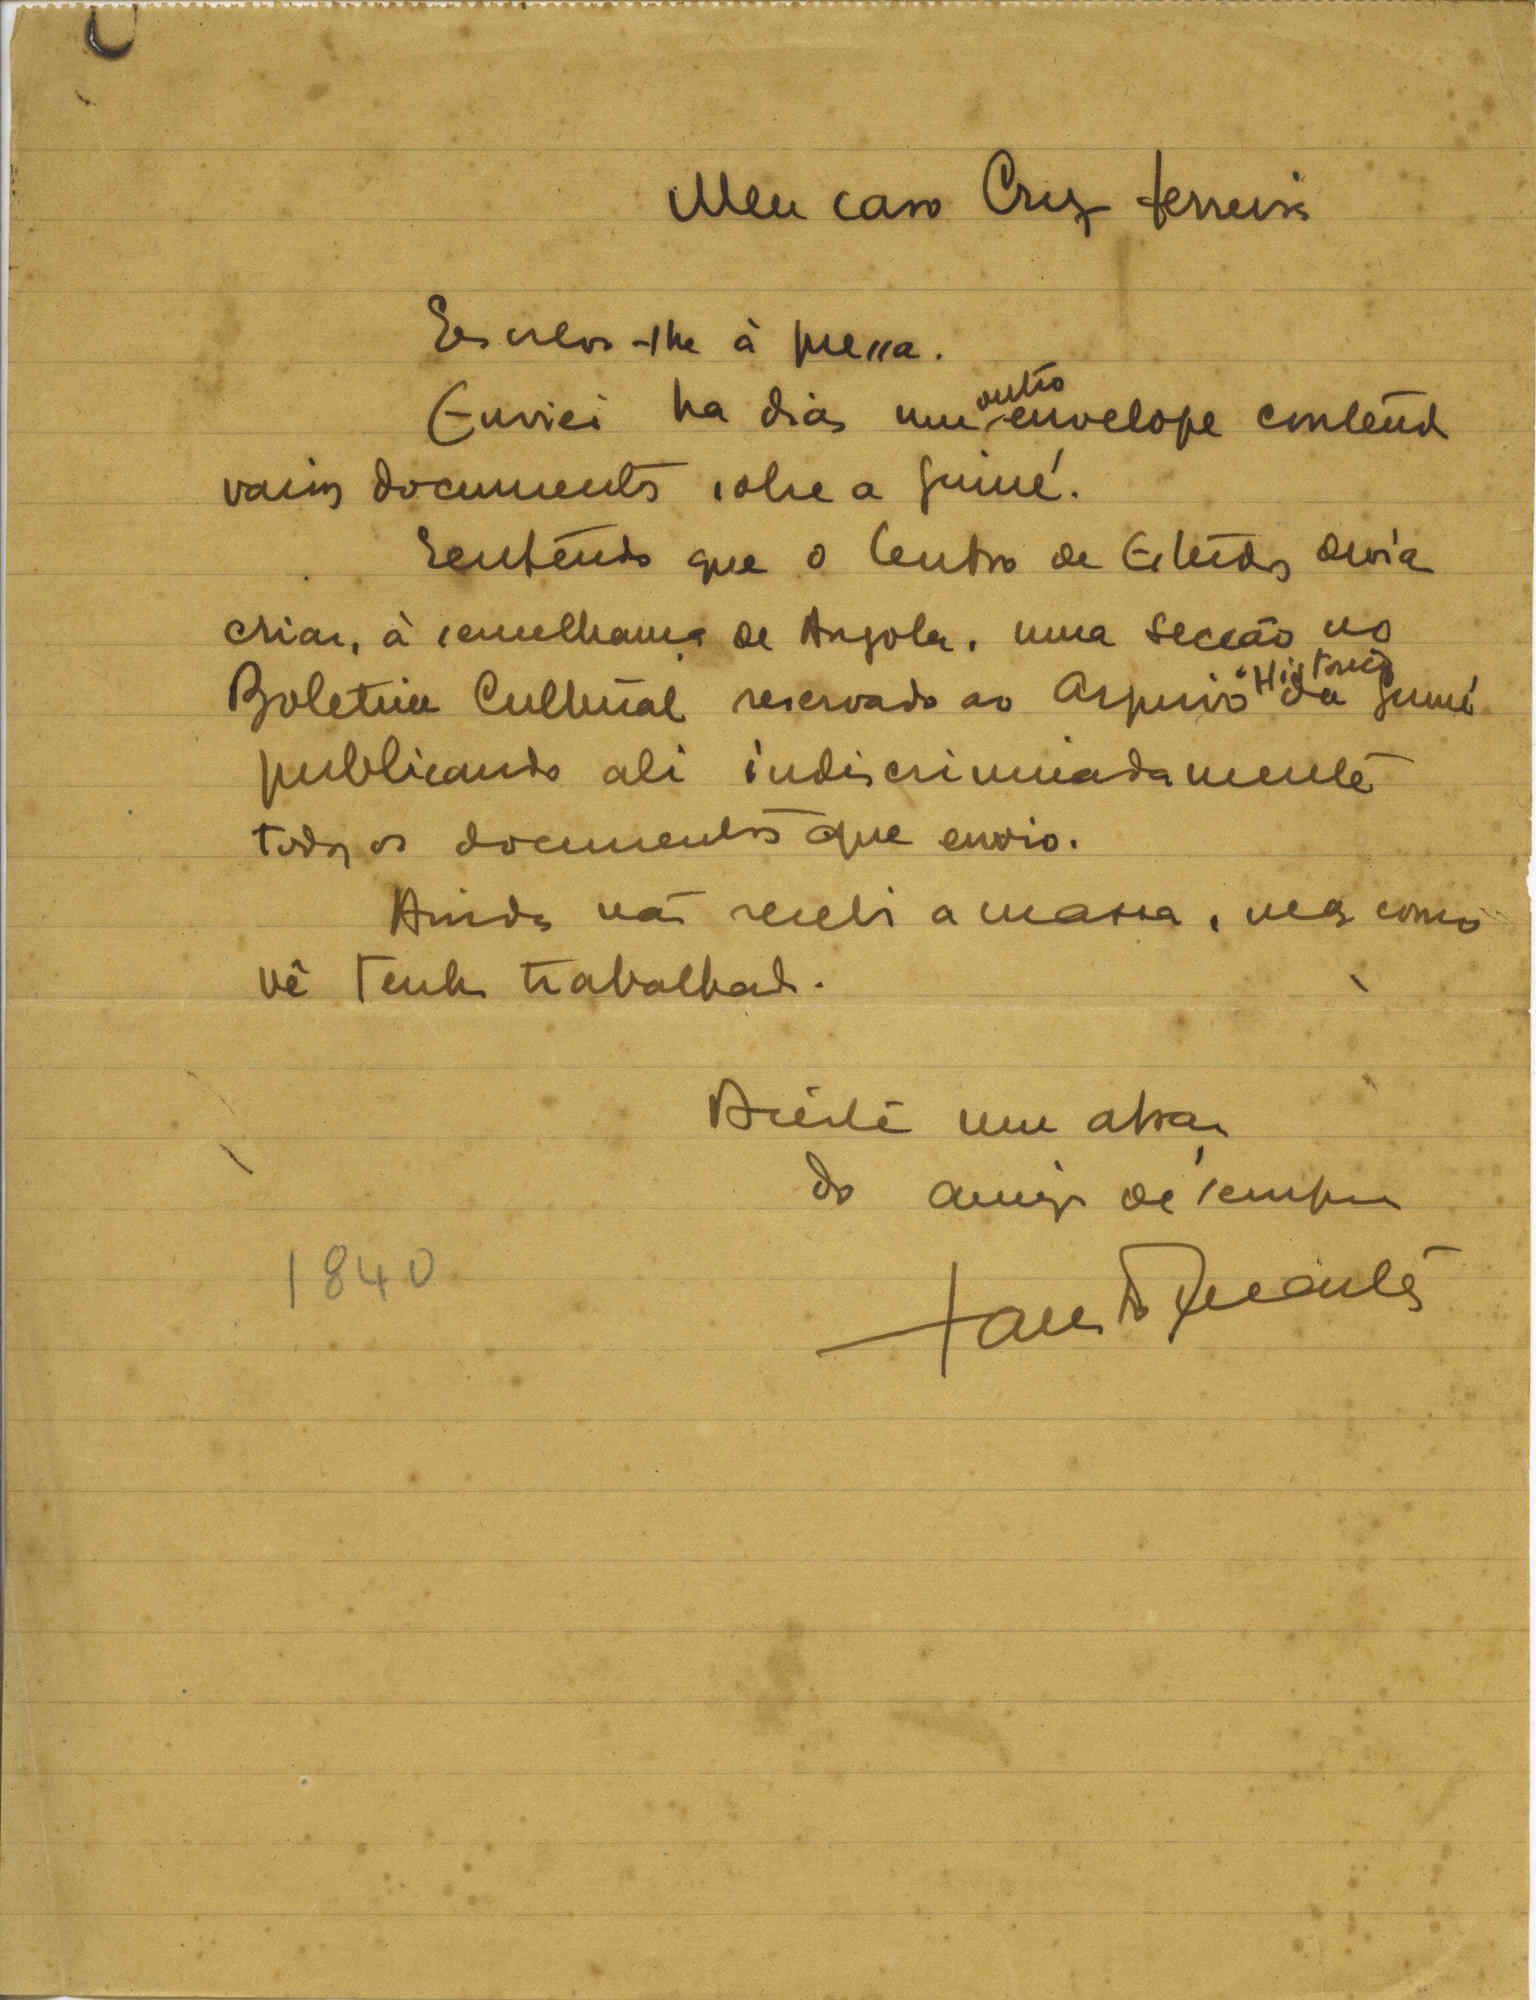 Meu caro Cruz Ferreira
Escrevo-lhe à pressa.
Enviei ha dias um outro envelope contendo
varios documentos sobre a Guiné.
Entendo que o Centro de Estudos devia
criar, à semelhança de Angola, uma secção no
Boletim Cultural reservado ao Arquivo Historico da Guiné
publicando ali indiscriminadamente
todos os documentos que envio.
Ainda não recebi a massa, mas como
vê tenho trabalhado.
Aceite um abraço
do amigo de sempre
1840